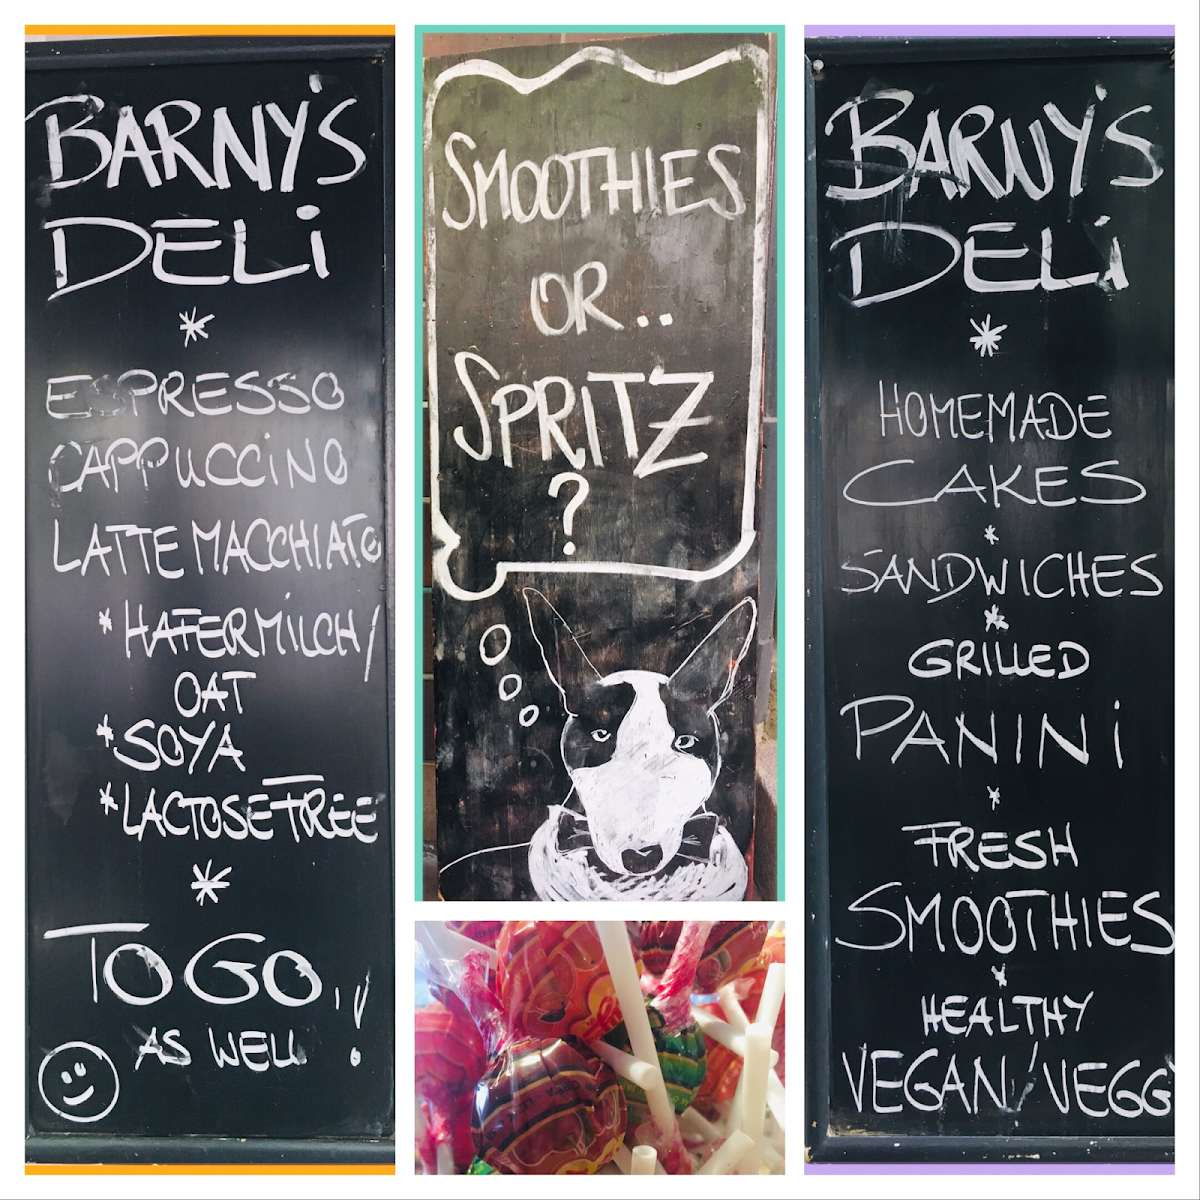 BARNY'S
DELi
*
ESPRESSO
CAPPUCCiNO
LATTE MACCHIATO
*HAFERMiLCH/
OAT
*SOYA
*LACTOSEFREE
*
TO GO,!
AS WELL
SMOOTHIES
OR..
SPRITZ
?
BARNY'S
DELi
*
HOMEMADE
CAKES
*
SANDWICHES
*
GRILLED
PANINi
*
FRESH
SMOOTHIES
*
HEALTHY
VEGAN/VEGGY